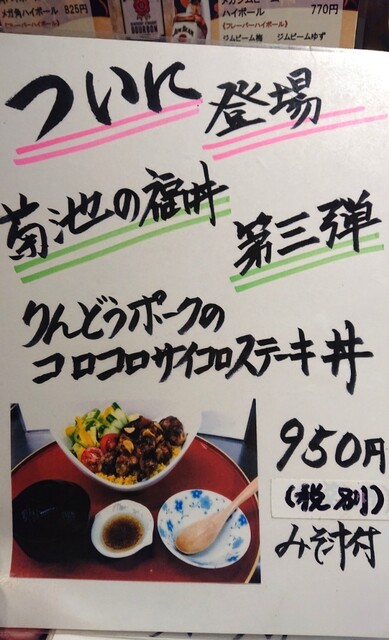 メガ角ハイボール 825円
BOURBON
ハイボール 770円
(フレーバーハイボール)
ジムビーム梅 ジムビームゆず
ついに登場
菊池の福丼
第三弾
りんどうポークの
コロコロサイコロステーキ丼
950円
(税別)
みそ汁付